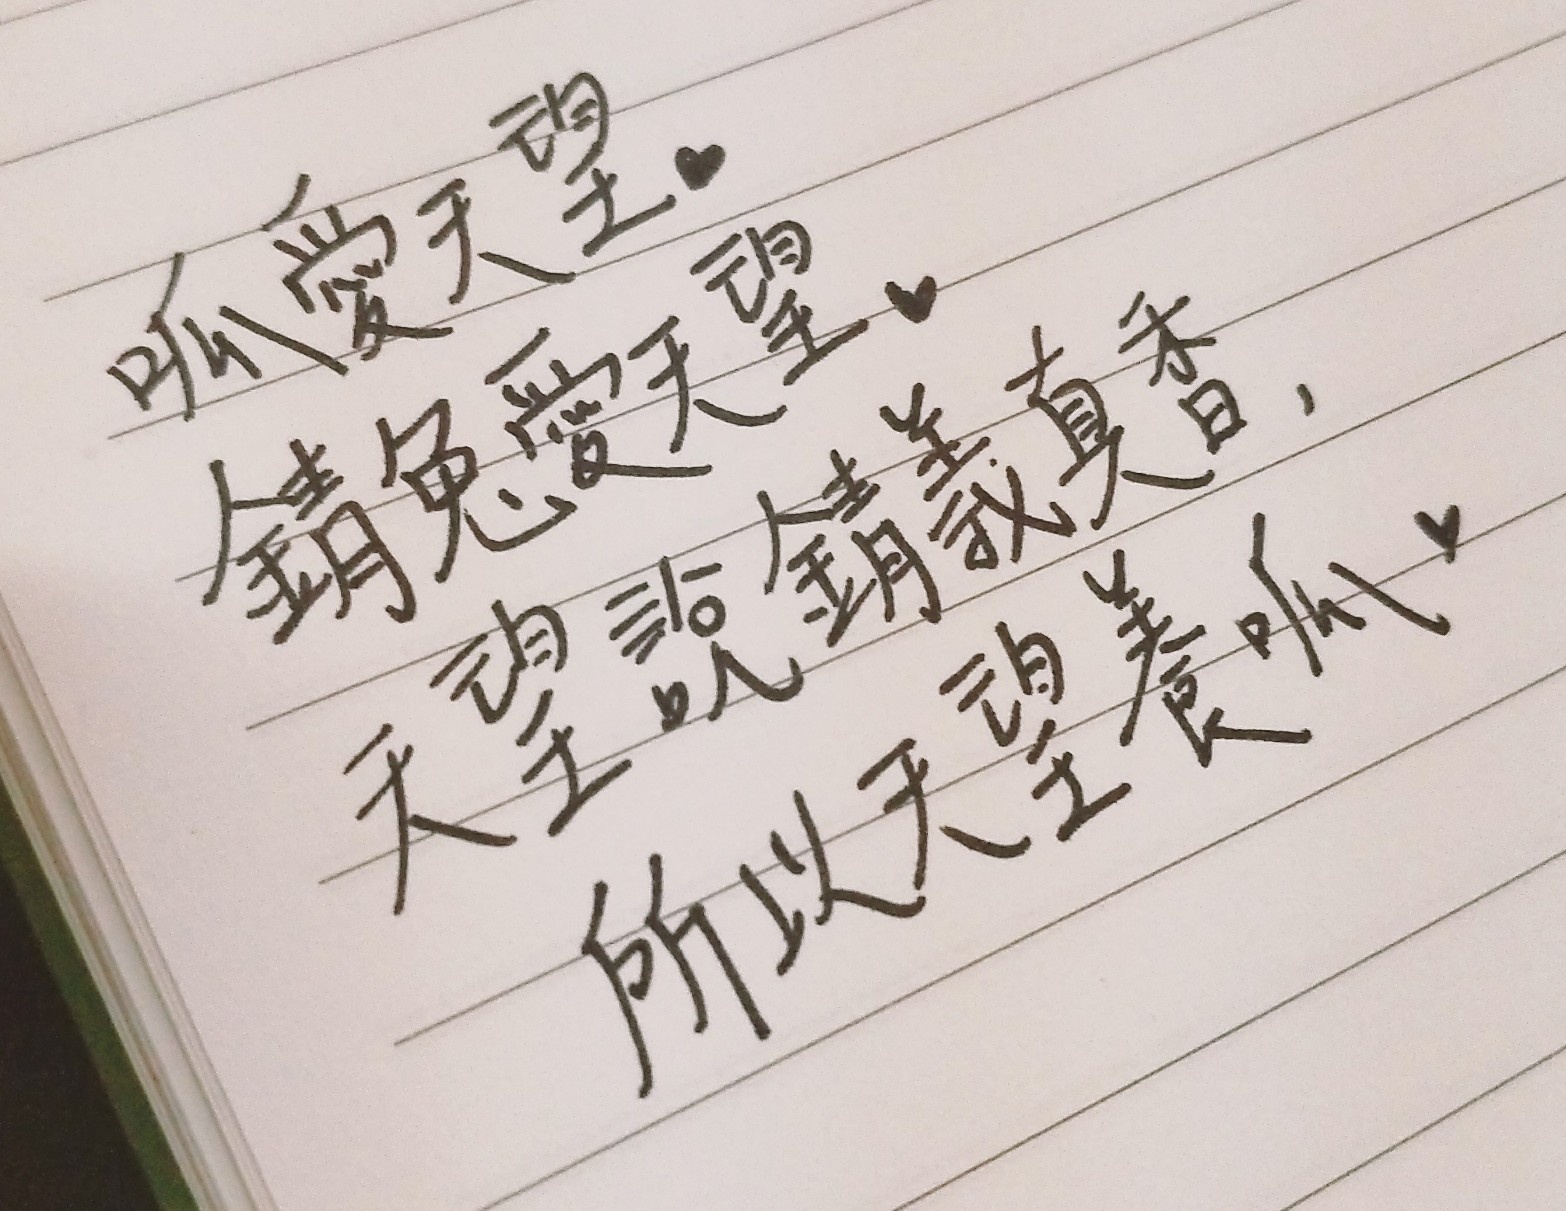 呱愛天望♥
錆兔愛天望♥
天望說錆義真香,
所以天望養呱♥